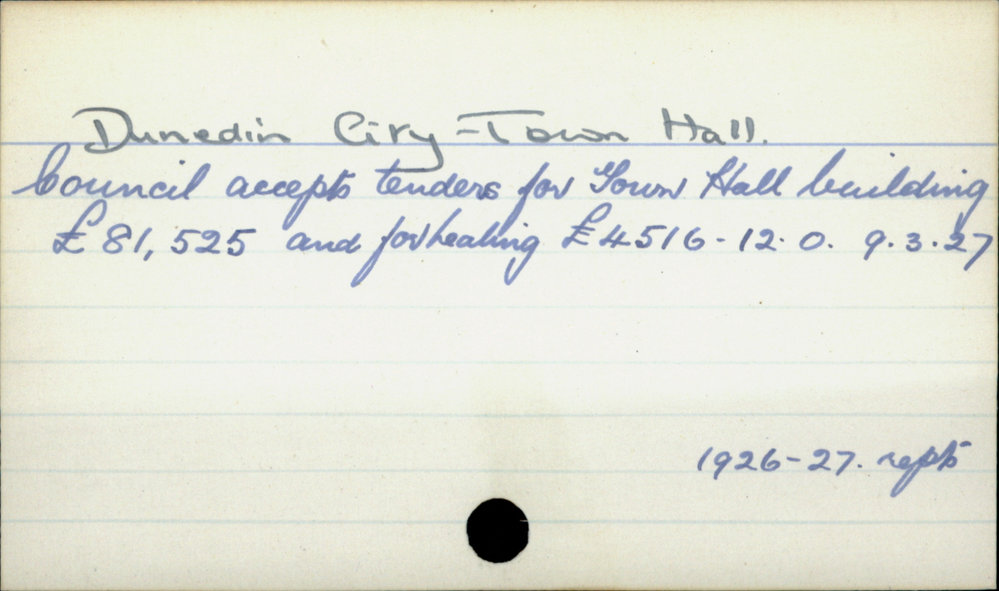 Dunedin City - Town Hall.
Council accepts tenders for Town Hall building
£81,525 and for heating £4516-12.0. 9.3.27
1926-27. repts